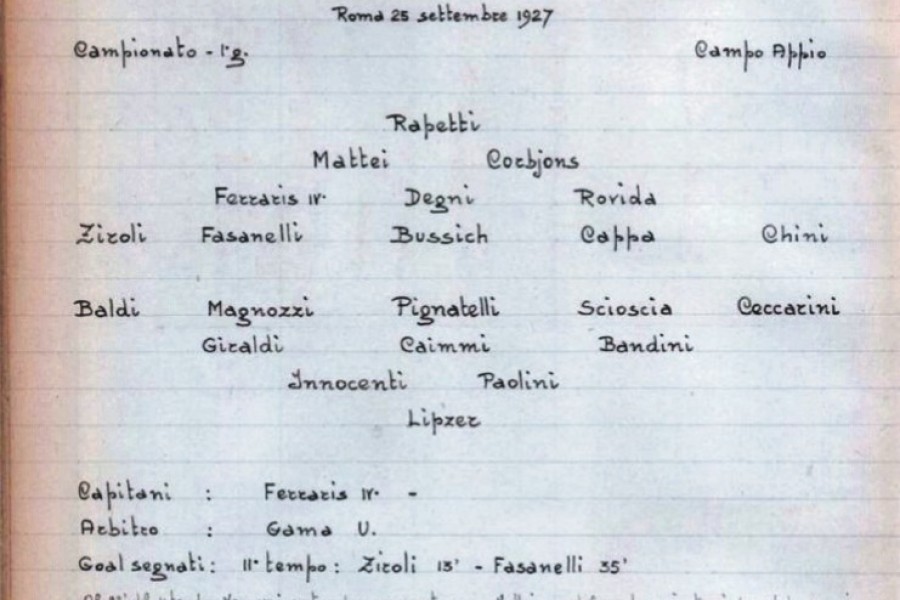 Roma 25 settembre 1927
Campionato - 1ª g. Campo Appio
Rapetti
Mattei Corbjons
Ferraris IV. Degni Rovida
Ziroli Fasanelli Bussich Cappa Chini
Baldi Magnozzi Pignatelli Scioscia Ceccarini
Giraldi Caimmi Bandini
Innocenti Paolini
Lipzer
Capitani : Ferraris IV. -
Arbitro : Gama U.
Goal segnati : II° tempo : Ziroli 13' - Fasanelli 35'